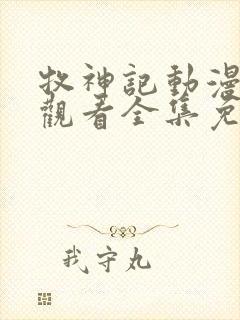 牧神記動漫
觀看全集免
我守丸